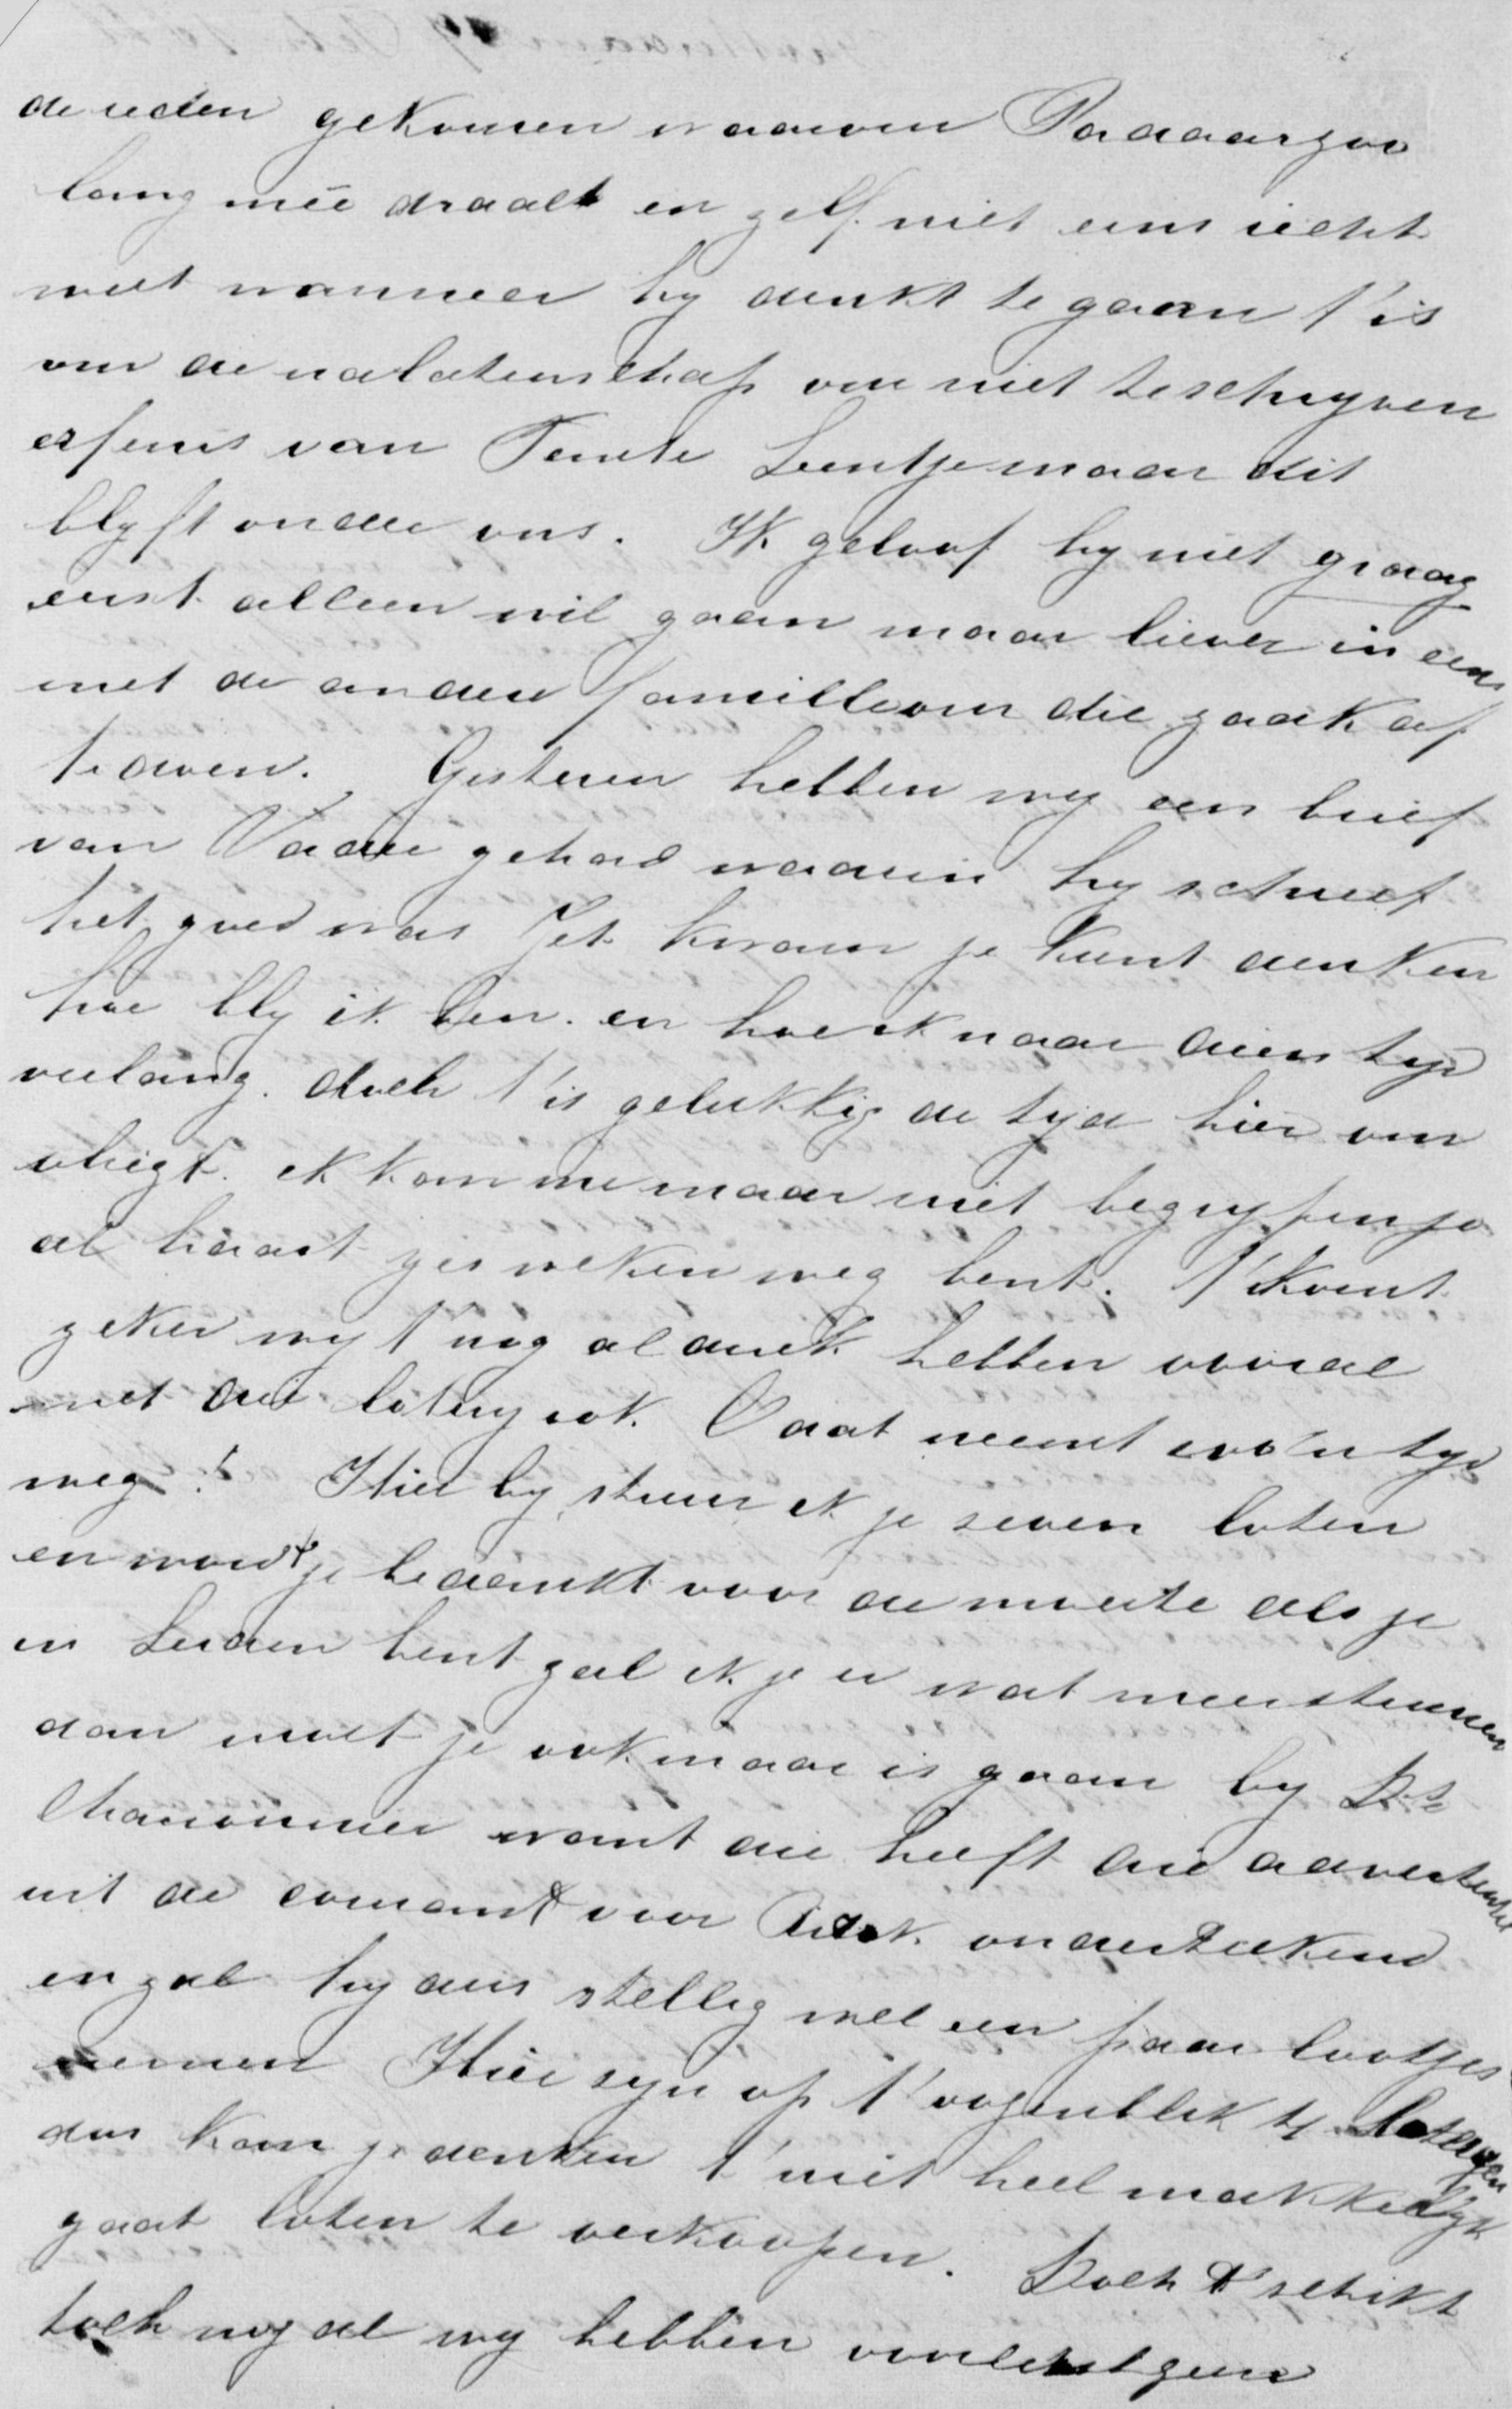 de reden gekomen waarom Padaar zoo
lang meê draalt en zelf niet eens recht
weet wanneer hy denkt te gaan t'is
om de nalatenschap om niet te schryven
erfenis van Tante Leentje maar dit
blyft onder ons. Ik geloof hy niet graag
eerst alleen wil gaan maar liever in eens
met de andere familie om die zaak af
te doen. Gisteren hebben wy een brief
van Vader gehad waarin hy schreef
het goed was Jet kwam je kunt denken
hoe bly ik ben. en hoe ik naar dien tyd
verlang. doch t'is gelukkig de tyd hier om
vliegt. ik kan me maar niet begrypen je
al haast zes weken weg bent. t'Komt
zeker wy t'nog al druk hebben vooral
met die lotery ook. Daat neemt zoo'n tyd
weg! Hier by stuur ik je seven loten
en wordt je bedankt voor de moeite als je
in Leiden bent zal ik je er wat meer sturen
dan moet je ook maar is gaan by Ds
want die heeft die advertentie
uit de courant voor onderteekend
en zal hy dus stellig wel een paar lootjes
nemen Hier syn op t'oogenblik 14 Loteryen
dus kan je denken t'niet heel makkelyk
gaat loten te verkoopen. Doch t'schikt
toch nog al wy hebben